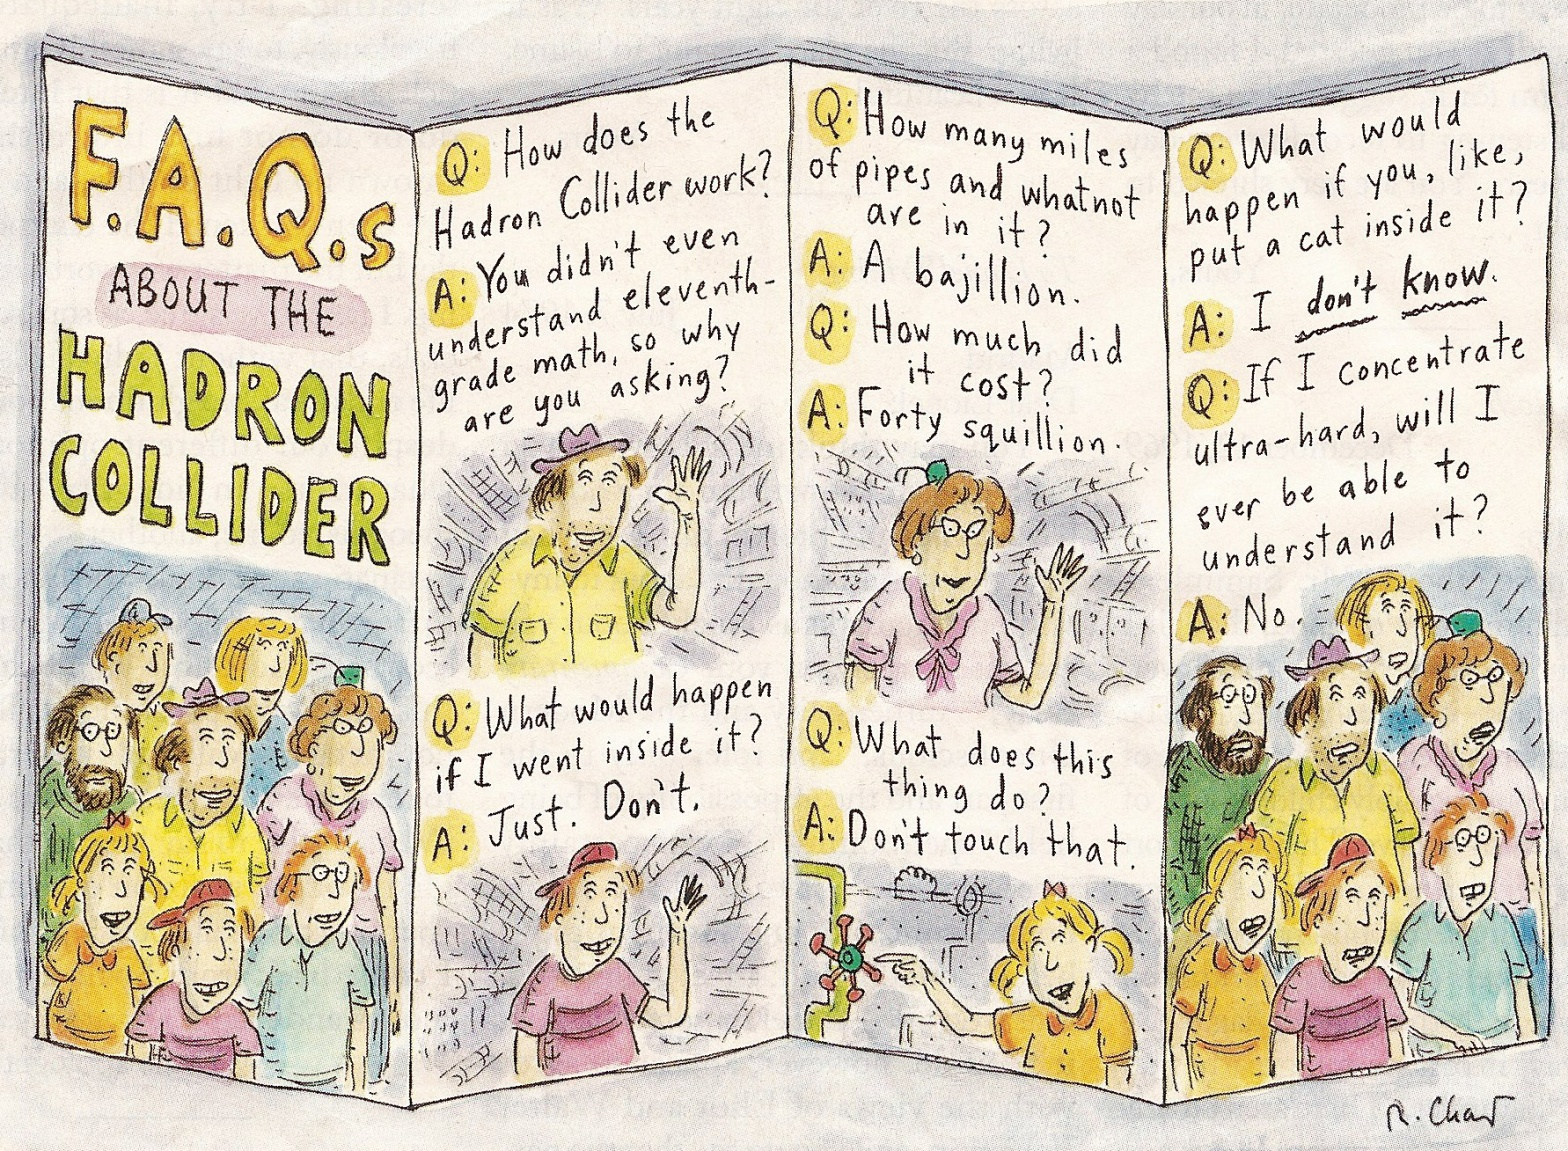 F.A.Q.s
ABOUT THE
HADRON
COLLIDER
Q: How does the
Hadron Collider work?
A: You didn't even
understand eleventh-
grade math, so why
are you asking?
Q: What would happen
if I went inside it?
A: Just. Don't.
Q: How many miles
of pipes and whatnot
are in it?
A: A bajillion.
Q: How much did
it cost?
A: Forty squillion.
Q: What does this
thing do?
A: Don't touch that.
Q: What would
happen if you, like,
put a cat inside it?
A: I don't know.
Q: If I concentrate
ultra-hard, will I
ever be able to
understand it?
A: No.
R. Chast